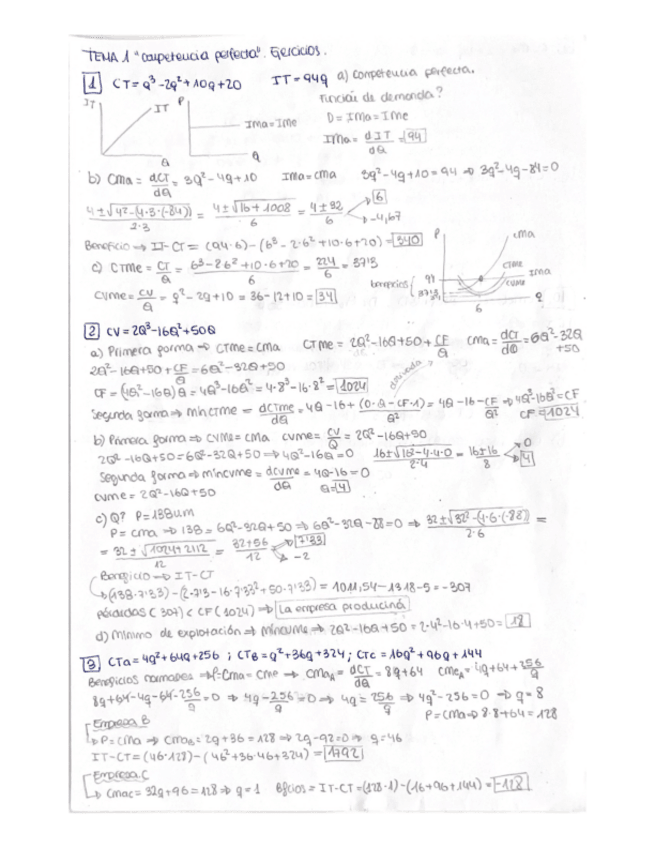 TEMA 1 "Competencia perfecta". Ejercicios.
1 CT = Q³ - 2Q² + 10Q + 20 IT = 94Q a) Competencia perfecta.
Función de demanda?
IT IT P Ima = Ime D = Ima = Ime
Q Q Ima = dIT/dQ = 94
b) Cma = dCT/dQ = 3Q² - 4Q + 10 Ima = cma 3Q² - 4Q + 10 = 94 ⇒ 3Q² - 4Q - 84 = 0
4 ± √4² - (4·3·(-84)) / 2·3 = 4 ± √16 + 1008 / 6 = 4 ± 32 / 6 6 -4,67
Beneficio ⇒ IT - CT = (94·6) - (6³ - 2·6² + 10·6 + 20) = 340
c) CTme = CT/Q = 6³ - 2·6² + 10·6 + 20 / 6 = 224/6 = 37'3
CVme = CV/Q = Q² - 2Q + 10 = 36 - 12 + 10 = 34
P cma CTme Ima CVme beneficios 94 37'3 34 6 Q
2 CV = 2Q³ - 16Q² + 50Q
a) Primera forma ⇒ CTme = Cma CTme = 2Q² - 16Q + 50 + CF/Q cma = dCT/dQ = 6Q² - 32Q + 50
2Q² - 16Q + 50 + CF/Q = 6Q² - 32Q + 50
CF = (4Q² - 16Q) Q = 4Q³ - 16Q² = 4·8³ - 16·8² = 1024 derivada
Segunda forma ⇒ mín CTme = dCTme/dQ = 4Q - 16 + (0·Q - CF·1)/Q² = 4Q - 16 - CF/Q² ⇒ 4Q³ - 16Q² = CF
CF = 1024
b) Primera forma ⇒ CVMe = CMa CVme = CV/Q = 2Q² - 16Q + 50
2Q² - 16Q + 50 = 6Q² - 32Q + 50 ⇒ 4Q² - 16Q = 0 16 ± √16² - 4·4·0 / 2·4 = 16 ± 16 / 8 0 4
Segunda forma ⇒ mín CVme = dCVme/dQ = 4Q - 16 = 0
CVme = 2Q² - 16Q + 50 Q = 4
c) Q? P = 138um
P = cma ⇒ 138 = 6Q² - 32Q + 50 ⇒ 6Q² - 32Q - 88 = 0 ⇒ 32 ± √32² - (4·6·(-88)) / 2·6 =
= 32 ± √1024 + 2112 / 12 = 32 + 56 / 12 7'33 -2
Beneficio ⇒ IT - CT
(138·7'33) - (2·7'3 - 16·7'33² + 50·7'33) = 1011,54 - 1318-5 = -307
pérdidas (307) < CF (1024) ⇒ La empresa producirá
d) Mínimo de explotación ⇒ mín CVMe ⇒ 2Q² - 16Q + 50 = 2·4² - 16·4 + 50 = 18
3 CTA = 4q² + 64q + 256 ; CTB = q² + 36q + 324 ; CTC = 16q² + 96q + 144
Beneficios normales ⇒ P = Cma = Cme ⇒ CmaA = dCT/dQ = 8q + 64 CmeA = 4q + 64 + 256/q
8q + 64 - 4q - 64 - 256/q = 0 ⇒ 4q - 256/q = 0 ⇒ 4q = 256/q ⇒ 4q² - 256 = 0 ⇒ q = 8
P = cma ⇒ 8·8 + 64 = 128
Empresa B
P = Cma ⇒ CmaB = 2q + 36 = 128 ⇒ 2q - 92 = 0 ⇒ q = 46
IT - CT = (46·128) - (46² + 36·46 + 324) = 1792
Empresa C
CmaC = 32q + 96 = 128 ⇒ q = 1 Bficios = IT - CT = (128·1) - (16 + 96 + 144) = -128